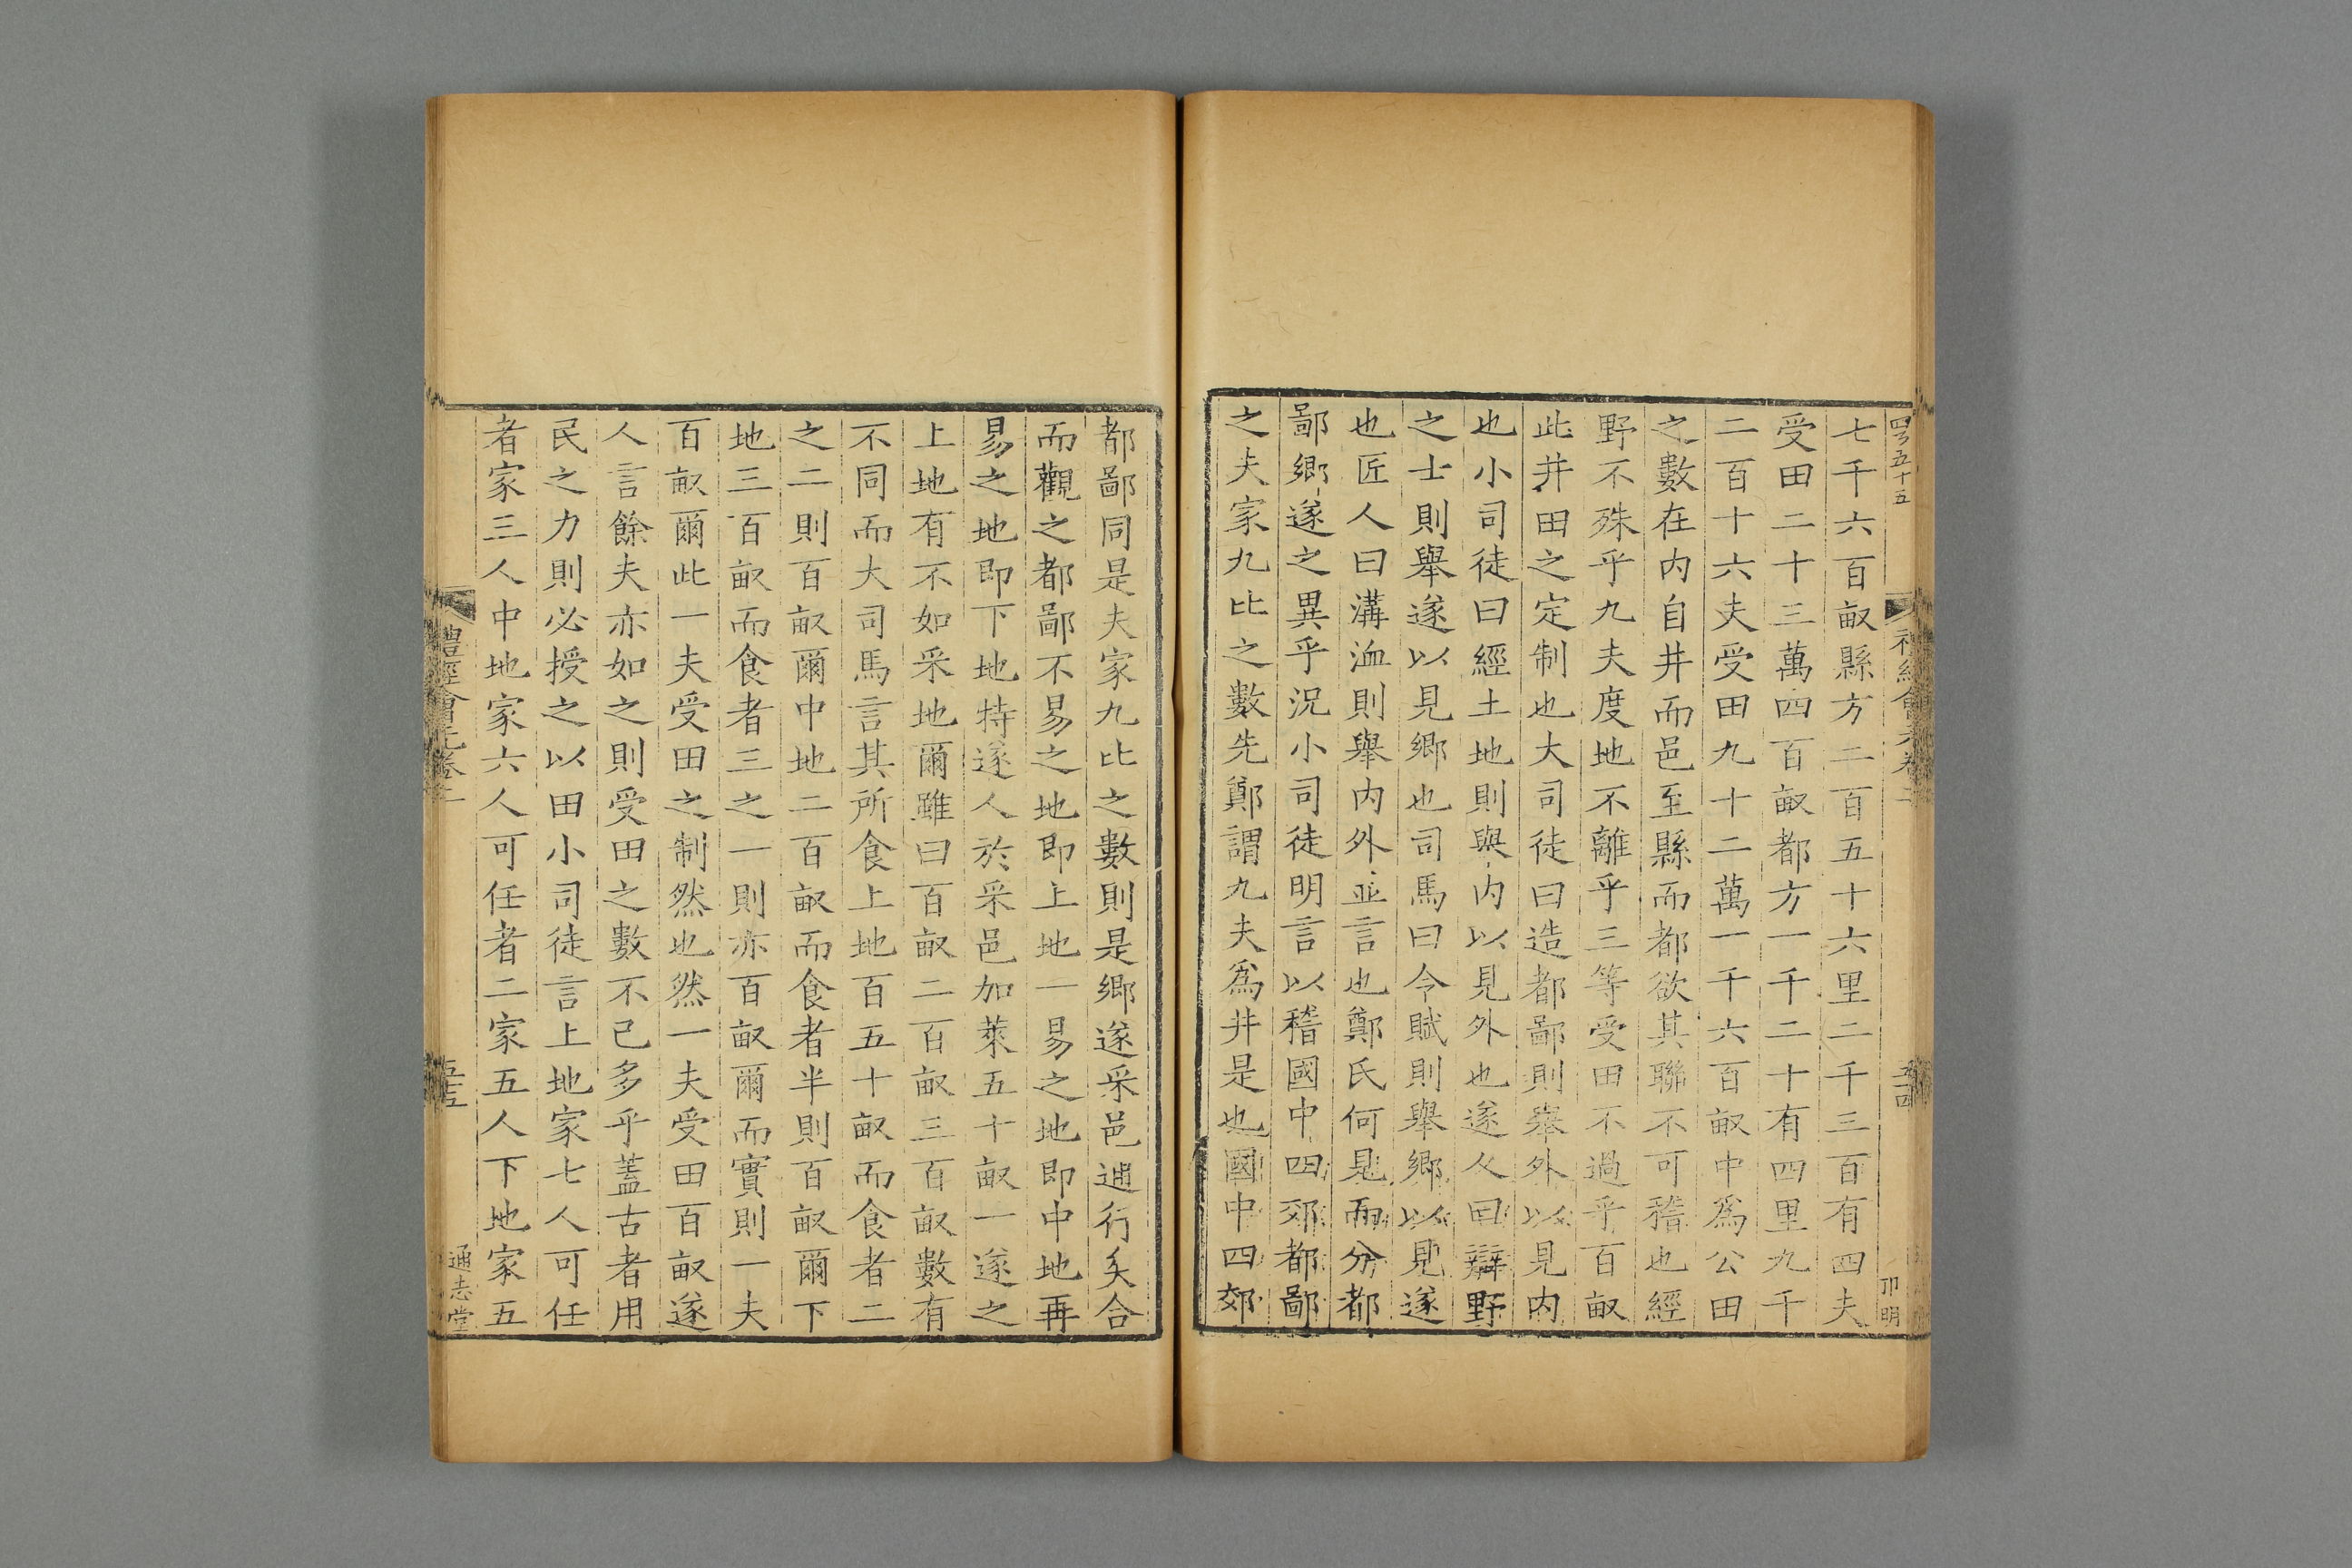 七千六百畝縣方二百五十六里二千三百有四夫
受田二十三萬四百畝都方一千二十有四里九千
二百十六夫受田九十二萬一千六百畝中爲公田
之數在内自井而邑至縣而都欲其聯不可稽也經
野不殊乎九夫度地不離乎三等受田不過乎百畝
此井田之定制也大司徒曰造都鄙則舉外以見内
也小司徒曰經土地則與内以見外也遂人曰辯野
之士則舉遂以見鄉也司馬曰令賦則舉鄉以見遂
也匠人曰溝洫則舉内外並言也鄭氏何見而分都
鄙鄉遂之異乎況小司徒明言以稽國中四郊都鄙
之夫家九比之數先鄭謂九夫爲井是也國中四郊
都鄙同是夫家九比之數則是鄉遂采邑通行矣合
而觀之都鄙不易之地即上地一易之地即中地再
易之地即下地特遂人於采邑加萊五十畝一遂之
上地有不如采地爾雖曰百畝二百畝三百畝數有
不同而大司馬言其所食上地百五十畝而食者二
之二則百畝爾中地二百畝而食者半則百畝爾下
地三百畝而食者三之一則亦百畝爾而實則一夫
百畝爾此一夫受田之制然也然一夫受田百畝遂
人言餘夫亦如之則受田之數不已多乎蓋古者用
民之力則必授之以田小司徒言上地家七人可任
者家三人中地家六人可任者二家五人下地家五
禮經會元卷二
五十五
通志堂